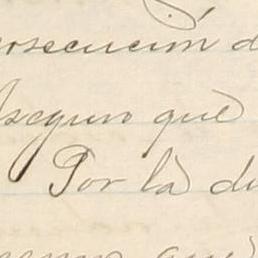 persecución d
Aseguro que
Por la d
que